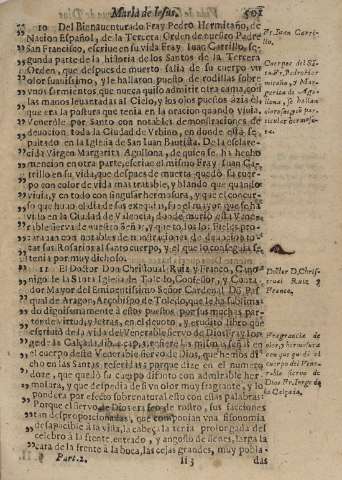 Maria de Iesus. 501
10 Del Bienauenturado Fray Pedro Hermitaño, de
Nacion Español, de la Tercera Orden de nuestro Padre
San Francisco, escriue en su vida Fray Iuan Carrillo, se-
gunda parte de la historia de los Santos de la Tercera
Orden, que despues de muerto salia de su cuerpo vn
olor suauissimo, y le hallaron puesto de rodillas sobre
vnos sarmientos que nunca quiso admitir otra cama, con
las manos leuantadas al Cielo, y los ojos puestos azia el,
que era la postura que tenia en la oracion quando viuia.
Venerole por Santo con notables demostraciones de
deuocion toda la Ciudad de Vrbino, en donde està se-
pultado en la Iglesia de San Iuan Bautista. De la esclare-
cida Virgen Margarita Agullona, de quien se ha hecho
mencion en otra parte, escriue el mismo Fray Iuan Car-
rillo en su vida, que despues de muerta quedò su cuer-
po con color de vida mas tratable, y blando que quando
viuia, y en todo con singular hermosura, y que el concur-
so que huuo el dia de sus exequias, fue el mayor que se ha
visto en la Ciudad de Valencia, donde murio esta Vene-
rable sierua de nuestro Señor, y que todos los fieles pro-
curauan con notables demostraciones de deuocion to-
car sus Rosarios al santo cuerpo, y el que lo conseguia se
tenia por muy dichoso.
11 El Doctor Don Christoual Ruiz y Franco, Cano-
nigo de la Santa Iglesia de Toledo, Confessor, y Conta-
dor Mayor del Eminentissimo Señor Cardenal D. Pas-
qual de Aragon, Arçobispo de Toledo, que le ha sublima-
do dignissimamente à estos puestos, por sus muchas par-
tes de virtud, y letras, en el deuoto, y erudito libro que
escriuiò de la vida del Venerable sieruo de Dios Fray Ior-
ge de la Calçada, dize cap. señales mismas señales en
el cuerpo deste Venerable sieruo de Dios, que hemos di-
cho en las Santas referidas, porque dize en el numero
doze, que quedò su cuerpo difunto con admirable her-
mosura, y que despedia de si vn olor muy fragrante, y lo
pondera por efecto sobrenatural esto con estas palabras:
Porque el sieruo de Dios era feo de rostro, sus facciones
tan desproporcionadas, que componian vna fisonomia
desapacible à la vista, la cabeça la tenia prolongada del
celebro à la frente, entrado, y angosto de sienes, larga la
cara de la frente à la boca, las cejas grandes, muy pobla-
Part. 2. Ii 3 das
Fr. Iuan Carri-
llo.
Cuerpos del B.
Pedro Her-
mitaño, y Mar-
garita de Agu-
llona, se hallan
olorosos, y con par-
ticular hermosu-
ra.
Doctor D. Chris-
toual Ruiz y
Franco.
Fragrancia de
olor, y hermosura
con que quedò el
cuerpo del Vene-
rable sieruo de
Dios Fr. Iorge de
la Calçada.